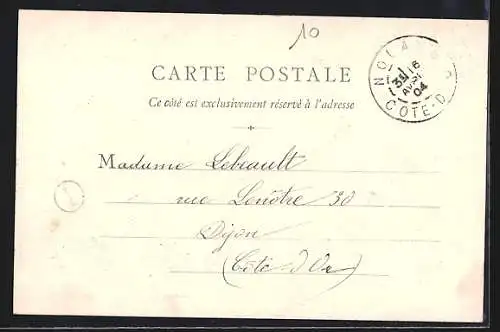 10
CARTE POSTALE
Ce côté est exclusivement réservé à l'adresse
NOLAY
3E 16
AVRIL
04
CÔTE-D
Madame Lebeault
rue Lenôtre 30
Dijon
(Côte d'Or)